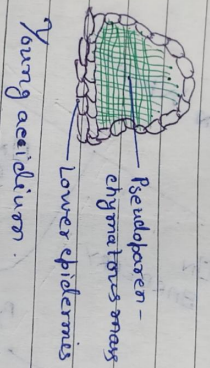 Pseudoparen-
chymatous mass
Lower epidermis
Young aecidium.